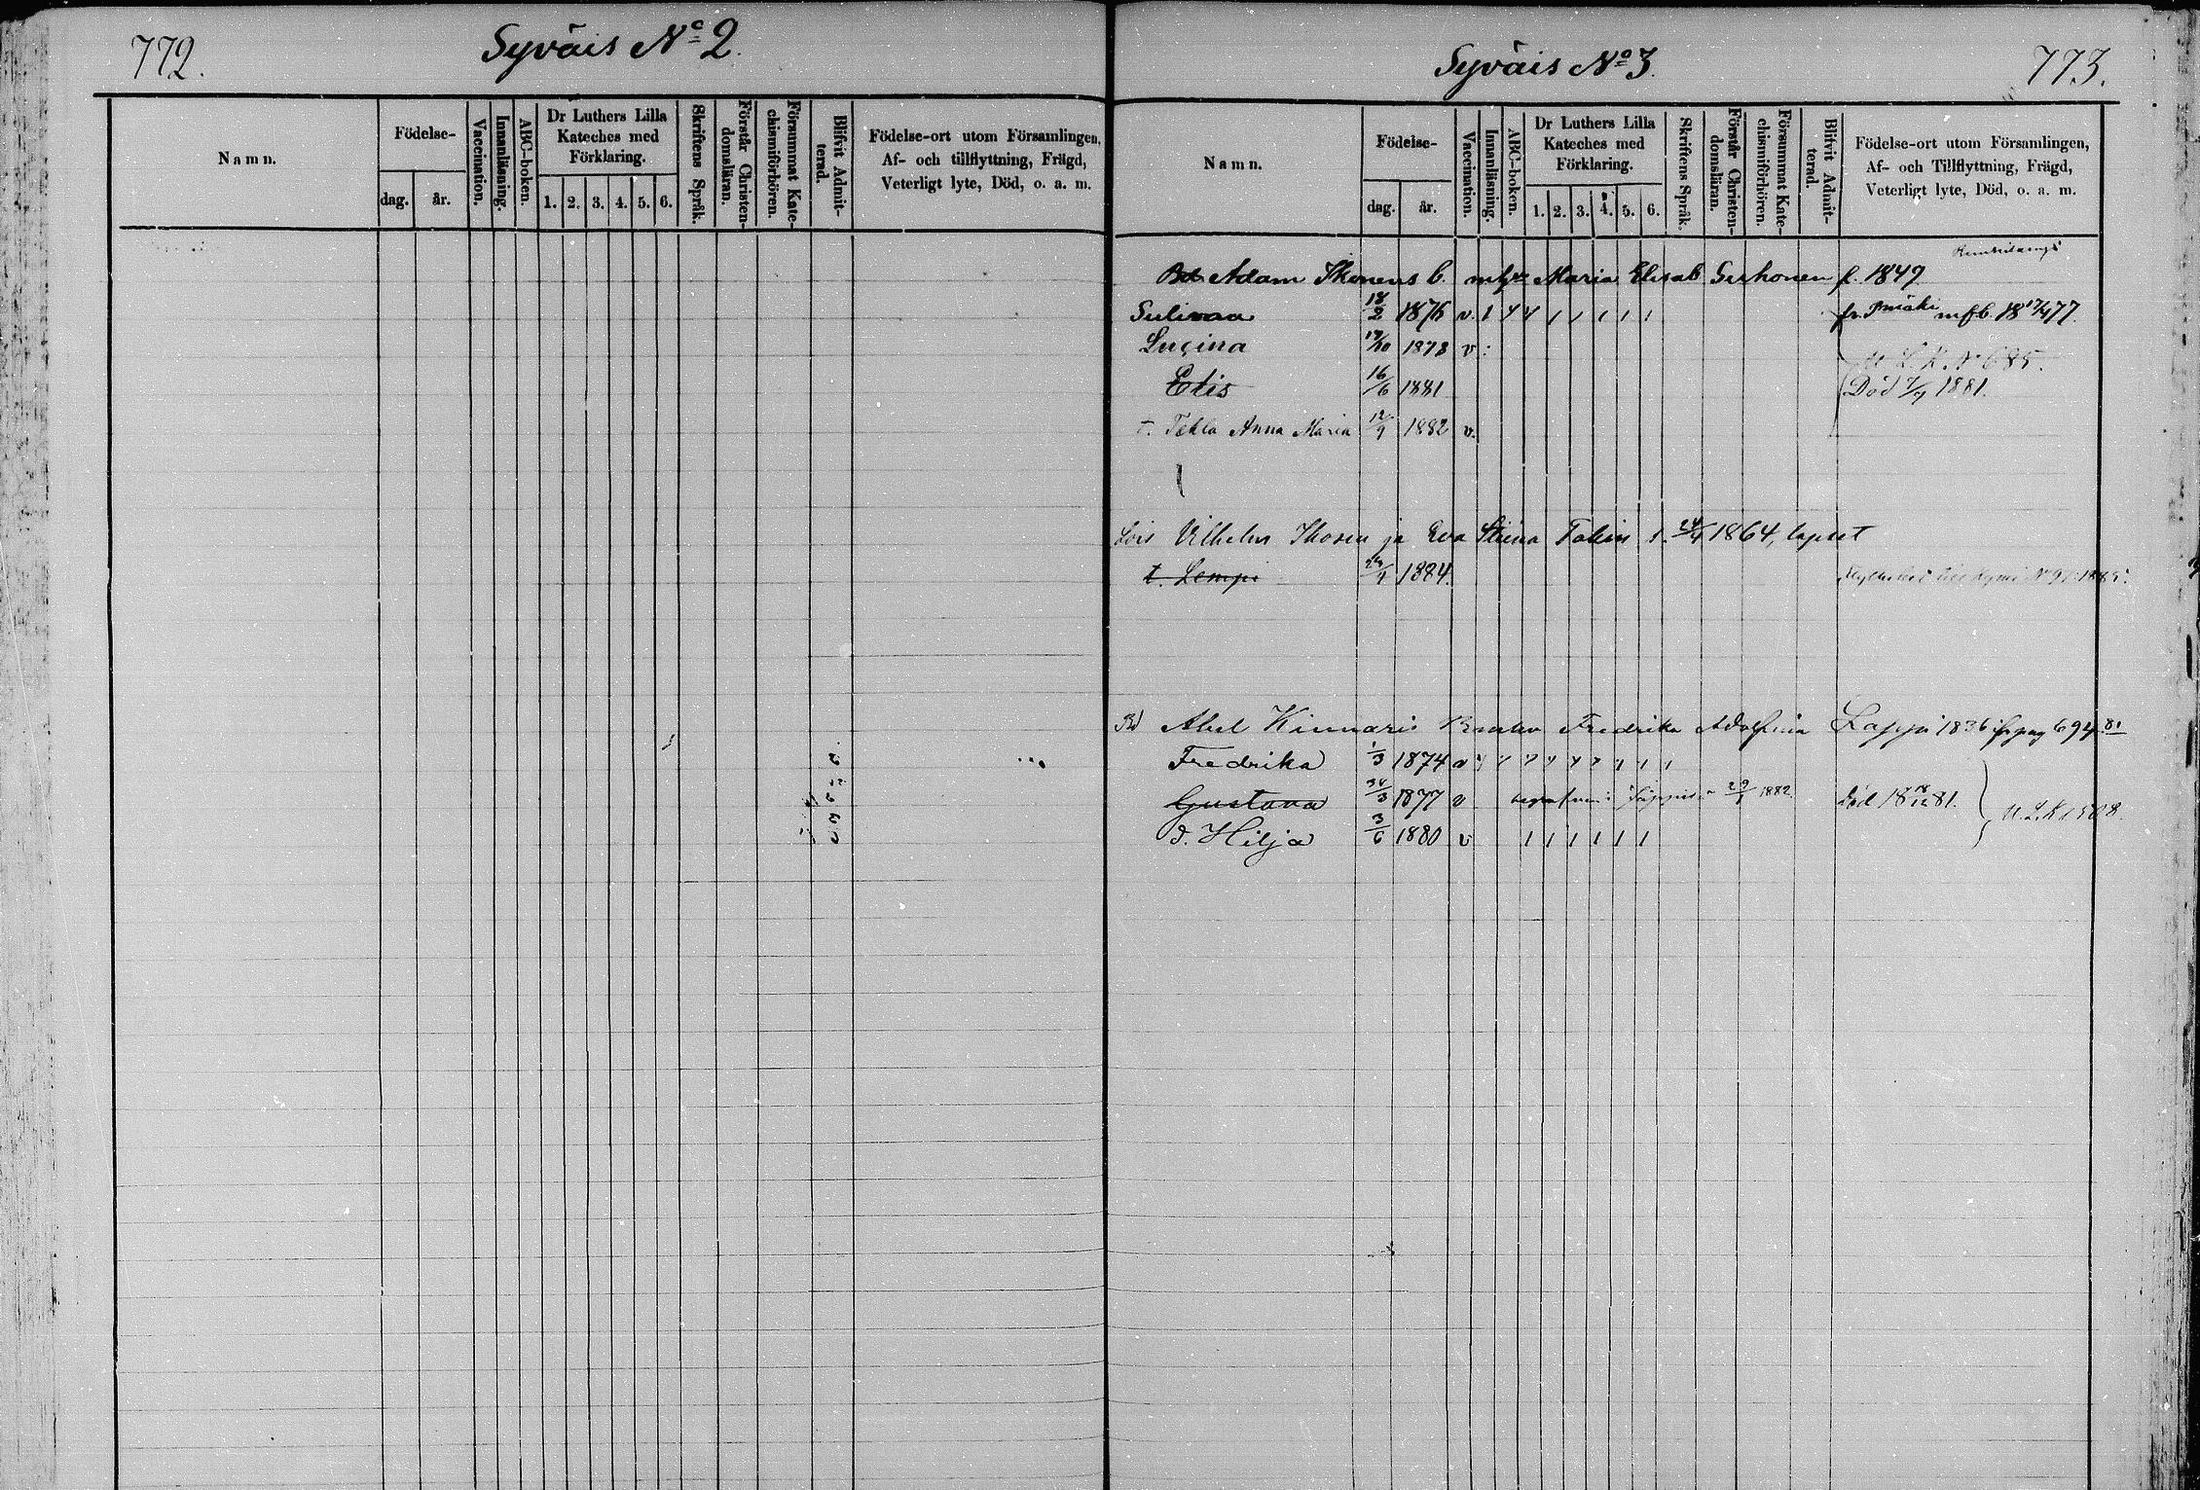 772.
Syväis No 2.
Namn.
Födelse-
dag. år.
Vaccination.
Innanläsning.
ABC-boken.
Dr Luthers Lilla
Kateches med
Förklaring.
1. 2. 3. 4. 5. 6.
Skriftens Språk.
Förstår Christen-
domsläran.
Försummat Kate-
chismiförhören.
Blifvit Admit-
terad.
Födelse-ort utom Församlingen,
Af- och tillflyttning, Frägd,
Veterligt lyte, Död, o. a. m.
Syväis No 3.
773.
Namn.
Födelse-
dag. år.
Vaccination.
Innanläsning.
ABC-boken.
Dr Luthers Lilla
Kateches med
Förklaring.
1. 2. 3. 4. 5. 6.
Skriftens Språk.
Förstår Christen-
domsläran.
Försummat Kate-
chismiförhören.
Blifvit Admit-
terad.
Födelse-ort utom Församlingen,
Af- och Tillflyttning, Frägd,
Veterligt lyte, Död, o. a. m.
Adam Ikonens b. m hu Maria Elisab f. 1849
18/2 1876 v.
Lucina 1873 v
16/6 1881 Död 1881.
t. Tekla Anna Maria 12/9 1882 v.
Lois Vilhelm Ikosen ja Eva Stiina 1864, lapset
t. Lempi 1884.
Abel Kinnaris Fredrika Adolfina Lappi 1836 fr pag 694 81
Fredrika 1/3 1874 v
Gustava 1877 v 1882 död 18 81.
d. Hilja 3/6 1880 v